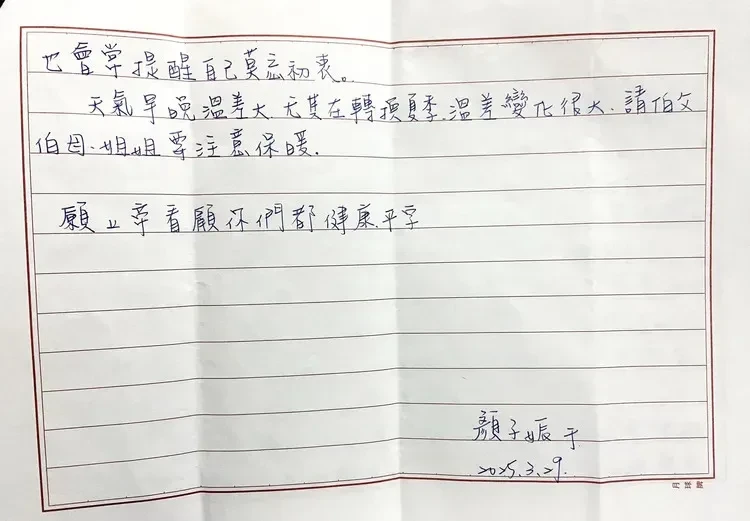 也會常提醒自己莫忘初衷。
天氣早晚溫差大,尤其在轉換夏季,溫差變化很大,請伯父
伯母、姐姐要注意保暖.
願上帝看顧你們都健康.平安
顏子娠于
2025.3.29.